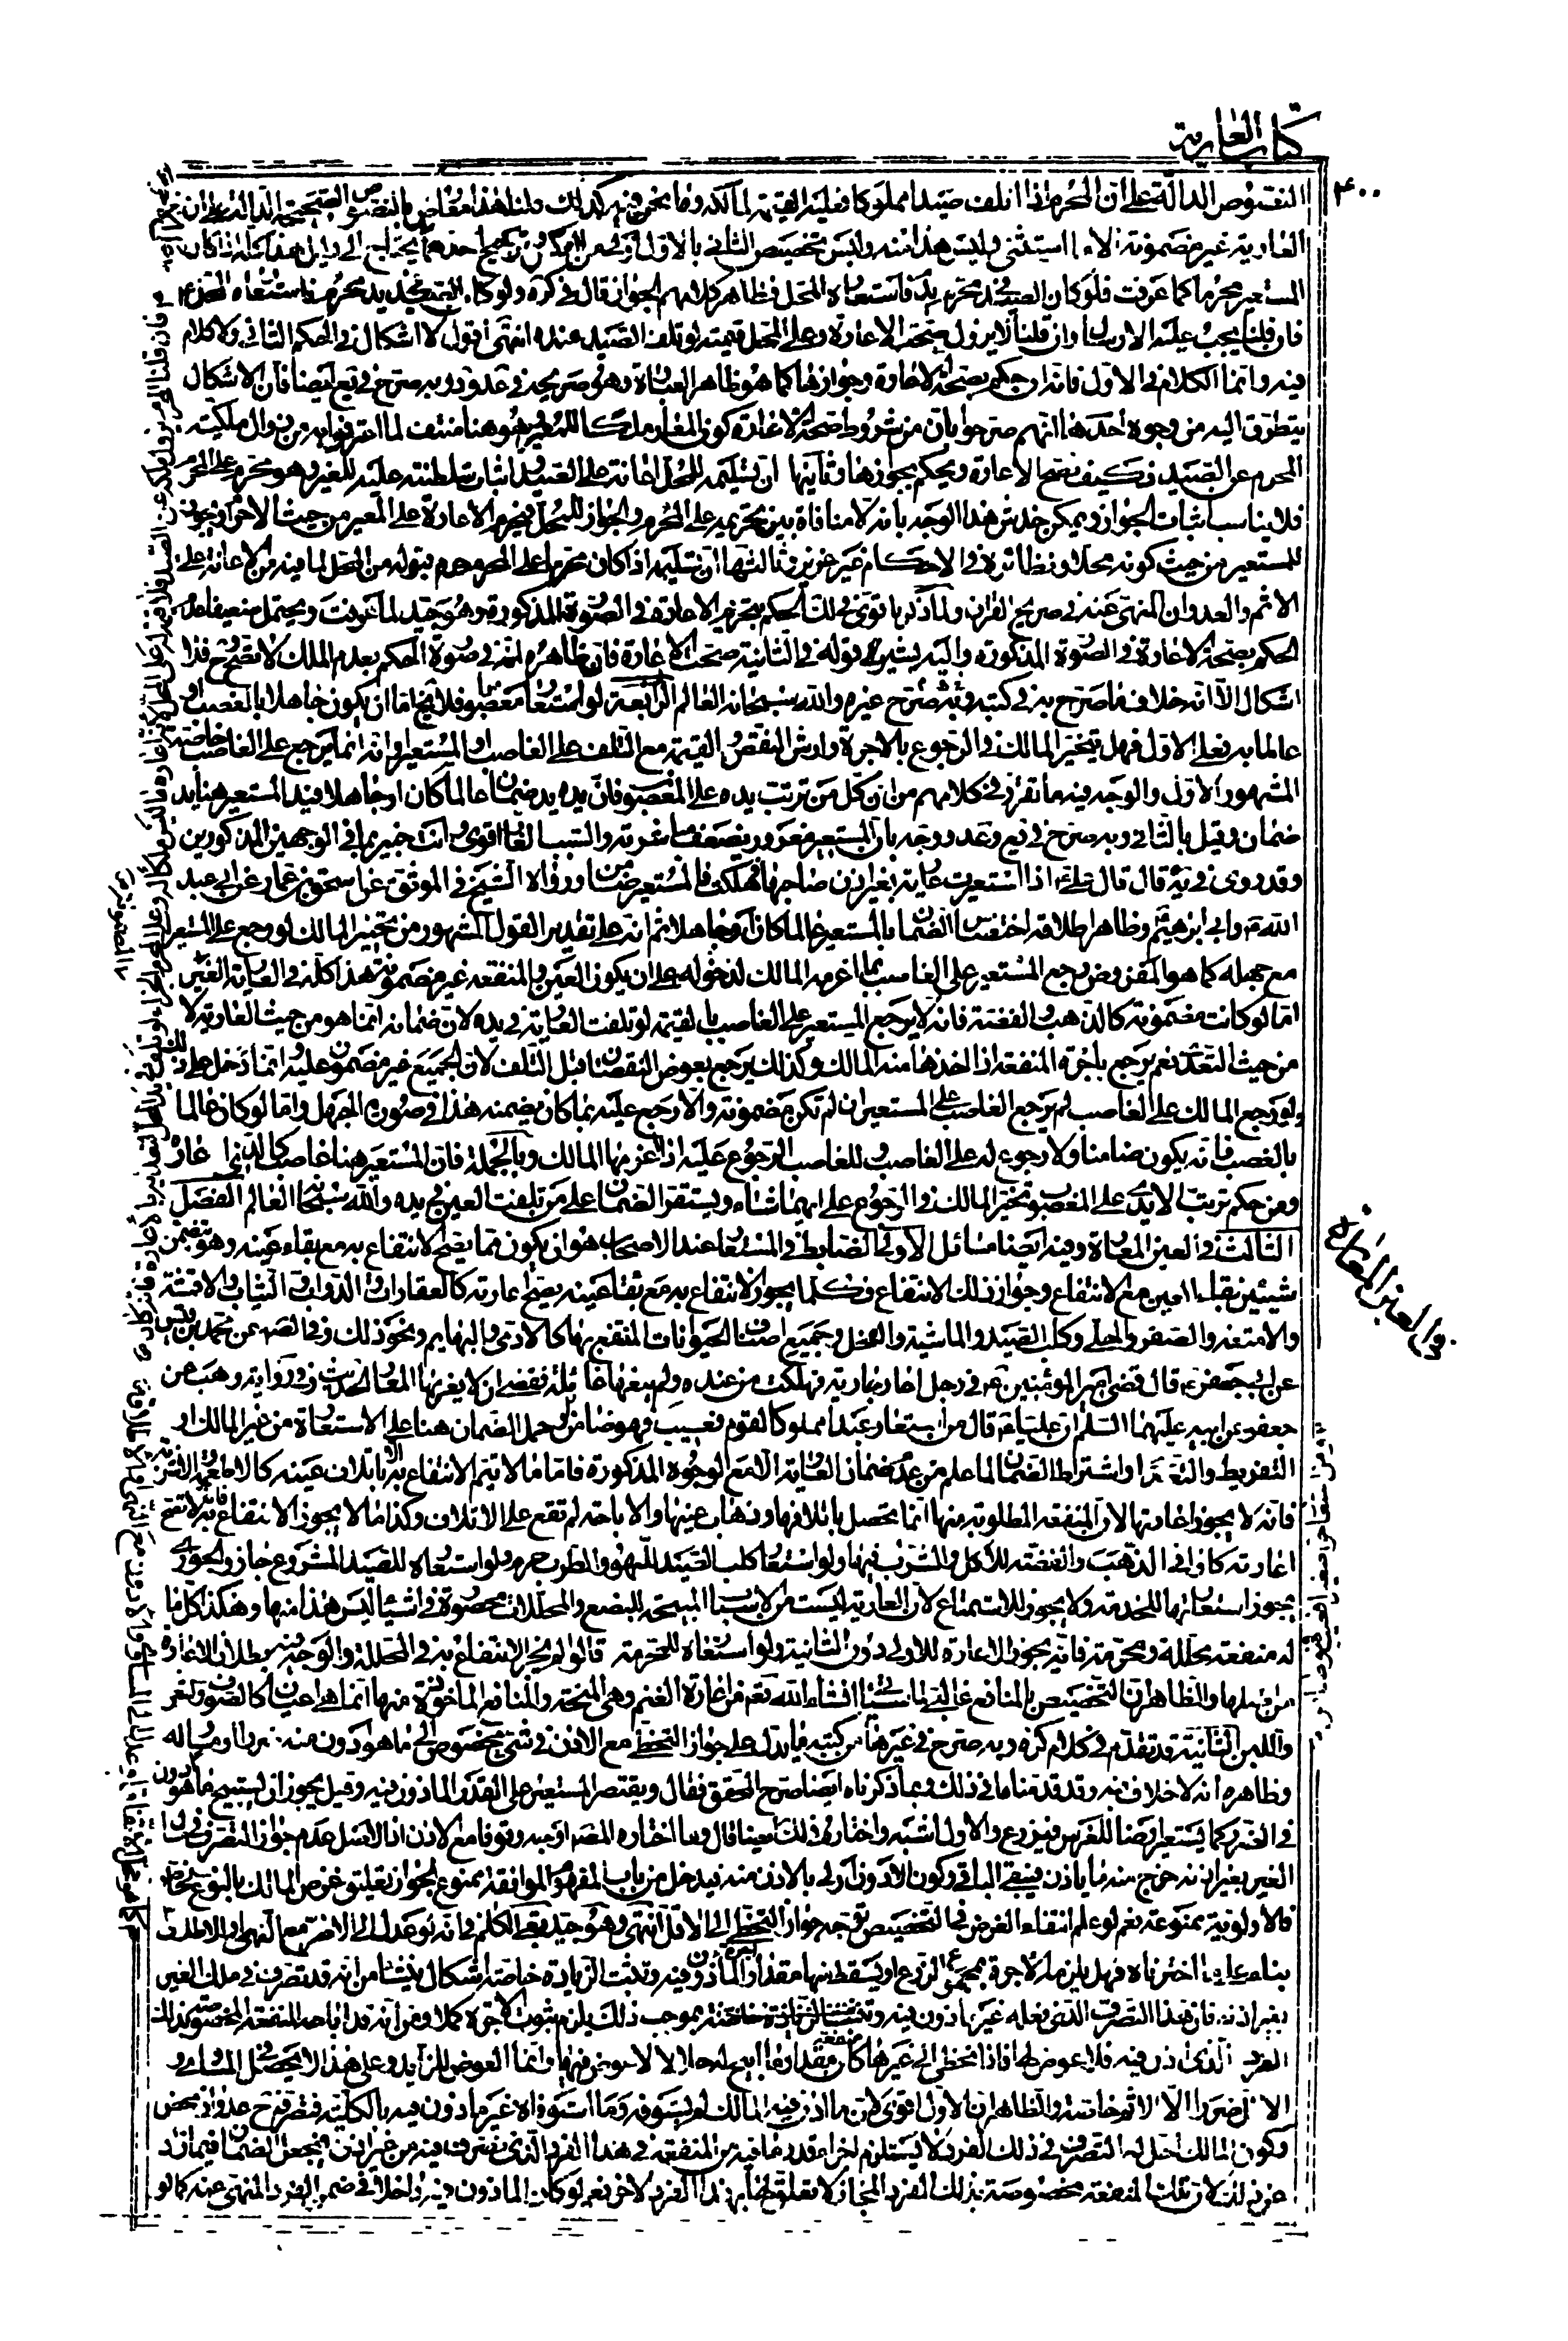 كتاب العارية
۴۰۰
النصوص الدالة على ان المحرم اذا اتلف صيدا مملوكا فعليه القيمة لمالكه وما نحن فيه كذلك قلنا هذا معارض بالنصوص الصحيحة الدالة على ان
العارية غير مضمونة الا ما استثنى وليس هذا منه وليس تخصيص الثاني بالاول اولى من العكس ترجيح احدهما يحتاج الى دليل هذا كله اذا كان
المستعير محرما كما عرفت فلو كان الصيد في يد محرم فاستعاره المحل فظاهر كلامهم الجواز قال في كره ولو كان الصيد في يد محرم فاستعاره المحل
فان قلنا يجب عليه الارسال وان قلنا لا يزول صحت الاعارة وعلى المحل قيمته لو تلف الصيد عنده انتهى اقول لا اشكال في الحكم الثاني ولا كلام
فيه وانما الكلام في الاول فانه ان حكم بصحة الاعارة وجوازها كما هو ظاهر العبارة وهو صريحه في عد وبه صرح في يع ايضا فان الاشكال
يتطرق اليه من وجوه احدها انهم صرحوا بان من شروط صحة الاعارة كون المعار ملكا للمعير وهو هنا منتف لما اعترفوا به من زوال ملكية
المحرم عن الصيد فكيف تصح الاعارة ويحكم بجوازها وثانيها ان تسليمه للمحل اعانة على الصيد واثبات سلطنته عليه للغير وهو محرم على المحرم
فلا يناسب اثبات الجواز ويمكن خدش هذا الوجه بانه لا منافاة بين تحريمه على المحرم والجواز للمحل فيحرم الاعارة على المعير من حيث الاحرام ويجوز
للمستعير من حيث كونه محلا ونظائره في الاحكام غير عزيز وثالثها ان تسليمه اذا كان محرما على المحرم حرم قبوله من المحل لما فيه من الاعانة على
الاثم والعدوان المنهى عنه في صريح القران ولما ذكرنا قوى في لك الحكم بتحريم الاعارة في الصورة المذكورة وهو جيد لما عرفت ويحتمل ضعيفا عدم
الحكم بصحة الاعارة في الصورة المذكورة واليه يشير قوله في الثانية صحت الاعارة فان ظاهره انه في صورة الحكم بعدم الملك لا تصح فلا
اشكال الا انه خلاف ما صرح به في كتبه وبه صرح غيره والله سبحانه العالم الرابعة لو استعار مغصوبا فلا يخ اما ان يكون جاهلا بالغصب او
عالما به فعلى الاول فهل يتخير المالك في الرجوع بالاجرة وارش النقص والقيمة مع التلف على الغاصب او المستعير او انه انما يرجع على الغاصب خاصة
المشهور الاول والوجه فيه ما تقرر في كلامهم من ان كل من ترتبت يده على المغصوب فان يده يد ضمان عالما كان او جاهلا فيد المستعير هنا يد
ضمان وقيل بالثاني وبه صرح في يع وعد ووجه بان المستعير مغرور فيضعف مباشرته والسبب الغار اقوى وانت خبير بما في الوجهين المذكورين
وقد روى في يه قال قال علي ع اذا استعيرت عارية بغير اذن صاحبها فهلكت فالمستعير ضامن ورواه الشيخ في الموثق عن اسحق بن عمار عن ابي عبد
الله ع وابي ابرهيم ع وظاهر اطلاقه اختصاص الضمان بالمستعير عالما كان او جاهلا ثم انه على تقدير القول المشهور من تخيير المالك لو رجع على المستعير
مع جهله كما هو المفروض رجع المستعير على الغاصب بما اغرمه المالك لدخوله على ان يكون العين والمنفعة غير مضمونة هذا كله في العارية الغير
اما لو كانت مضمونة كالذهب والفضة فانه لا يرجع المستعير على الغاصب بالقيمة لو تلفت العارية في يده لان ضمانه انما هو من حيث العارية لا
من حيث التعدي نعم يرجع باجرة المنفعة اذا اخذها منه المالك وكذلك يرجع بعوض النقصان قبل التلف لان الجميع غير مضمون عليه انما دخل على ذلك
ولو رجع المالك على الغاصب لم يرجع الغاصب على المستعير ان لم تكن مضمونة والا رجع عليه بما كان يضمنه هذا في صورة الجهل واما لو كان عالما
بالغصب فانه يكون ضامنا ولا رجوع له على الغاصب وللغاصب الرجوع عليه اذا اغرمها المالك وبالجملة فان المستعير هنا غاصب كالذي اعاره
ومن حكم ترتب الايدي على المغصوب تخير المالك في الرجوع على ايهما شاء ويستقر الضمان على من تلفت العين في يده والله سبحانه العالم الفصل
الثالث في العين المعارة وفيه ايضا مسائل الاولى الضابط في المستعار عند الاصحاب هو ان يكون مما يصح الانتفاع به مع بقاء عينه وهو يتضمن
شيئين بقاء العين مع الانتفاع وجواز ذلك الانتفاع فكلما يجوز الانتفاع به مع بقاء عينه يصح اعارته كالعقارات والدواب والثياب والاقمشة
والامتعة والصفر والحلي وكلب الصيد والماشية والفحل وجميع اصناف الحيوانات المنتفع بها كالادمي والبهايم ونحو ذلك وفي الصحيح عن محمد بن قيس
عن ابي جعفر ع قال قضى امير المؤمنين ع في رجل اعار جارية فهلكت من عنده ولم يبغها غائلة فقضى ان لا يغرمها المعار الحديث وفي رواية وهب عن
جعفر عن ابيه عليهما السلم ان عليا ع قال من استعار عبدا مملوكا لقوم فعيب فهو ضامن وحمل الضمان هنا على الاستعارة من غير المالك او
التفريط والتعدي او اشتراط الضمان لما علم من عدم ضمان العارية الا مع الوجوه المذكورة فاما ما لا يتم الانتفاع به الا باتلاف عينه كالاطعمة والاشربة
فانه لا يجوز اعارتها لان المنفعة المطلوبة منها انما تحصل باتلافها وذهاب عينها والاباحة لم تقع على الاتلاف وكذا ما لا يجوز الانتفاع به فانه لا تصح
اعارته كاواني الذهب والفضة للاكل والشرب فيها ولو استعار كلب الصيد للهو والطرب حرم ولو استعاره للصيد المشروع جاز والجواري
يجوز استعارتها للخدمة ولا يجوز للاستمتاع لان العارية ليست من الاسباب المبيحة للبضع والمحللات محصورة في اشياء ليس هذا منها وهكذا كل ما
له منفعة محللة ومحرمة فانه يجوز الاعارة للاولى دون الثانية ولو استعاره للمحرمة قالوا لم يجز الانتفاع به في المحللة والوجه فيه بطلان الاعارة
من اصلها والظاهر ان التخصيص بالمنافع غالبي لما سيأتي انشاء الله تعم من اعارة الغنم وهي المنحة والمنافع الماخوذة منها انما هي اعيان كالصوف والشعر
واللبن الثانية قد تقدم في كلام كره وبه صرح في غيرها من كتبه ما يدل على جواز التخطي مع الاذن في شيء بخصوص الى ما هو دون منه ضررا او مساو له
وظاهره انه لا خلاف فيه وقد قدمنا ما في ذلك وبما ذكرناه ايضا صرح المحقق فقال ويقتصر المستعير على القدر الماذون فيه وقيل يجوز ان يستبيح ما هو دون
في الضرر كما يستعير ارضا للغرس فيزرع والاول اشبه واختاره في لك ايضا قال وما اختاره المصنف اوجه وقوفا مع الاذن اذ الاصل عدم جواز التصرف في مال
الغير بغير اذنه خرج منه ما ياذن فيبقى الباقي وكون الادون اولى بالاذن منه فيدخل من باب المفهوم الموافقة ممنوع لجواز تعلق غرض المالك بالنوع الخاص
فالاولوية ممنوعة نعم لو علم انتفاء الغرض في التخصيص توجه جواز التخطي الى الاقل انتهى وهو جيد بقي الكلام في انه لو عدل الى الاضر مع النهي او الاطلاق
بناء على ما اخترناه فهل يلزمه الاجرة لمجموع الزرع او يسقط منها مقدار الماذون فيه وتثبت الزيادة خاصة اشكال ينشا من انه قد تصرف في ملك الغير
بغير اذنه فان هذا التصرف الذي فعله غير ماذون فيه بموجب ذلك يلزم ثبوت الاجرة كملا ومن انه قد اباحه المنفعة المخصوصة بذلك
الفرد الذي اذن فيه فلا عوض لها فاذا تخطى الى غيرها كان مقدار منفعة ما ابيح له حلالا لا عوض فيها وانما العوض للزايد وعلى هذا لا يحصل المساوى و
الاقل ضررا الا الاثم خاصة والظاهر ان الاول اقوى لان ما اذن فيه المالك لم يستوفه وما استوفاه غير ماذون فيه بالكلية فتصرفه ح عدوان محض
وكون المالك احل له التصرف في ذلك الفرد لا يستلزم اجراء قدر ما فيه من المنفعة في هذا الفرد الذي تصرف فيه من غير اذن فيجعل الضمان فيما زاد
عن ذلك لان تلك المنفعة مخصوصة بذلك الفرد المجاز لا تعلق لها بهذا الفرد الاخر نعم لو كان الماذون فيه داخلا في ضمن الفرد المنهى عنه كما لو
في العين المعارة